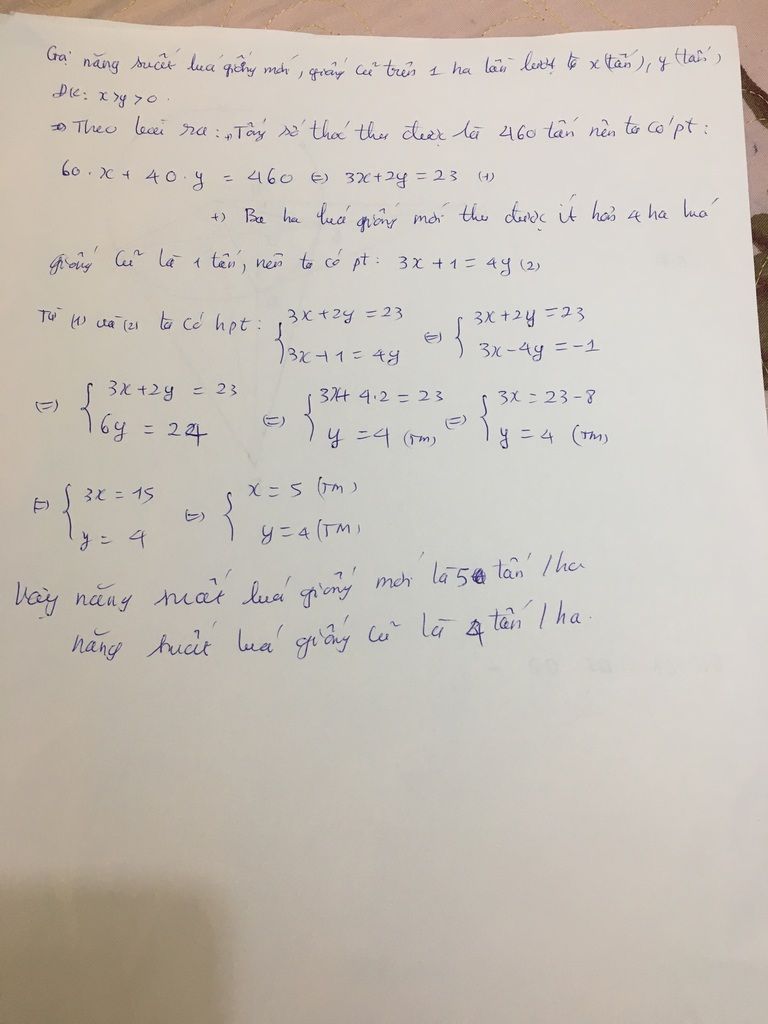 Gọi năng suất lúa giống mới, giống cũ trên 1 ha lần lượt là x(tấn), y(tấn)
ĐK: x>y>0.
=> Theo bài ra: +, Tổng số thóc thu được là 460 tấn nên ta có pt:
60.x + 40.y = 460 <=> 3x+2y = 23 (1)
+) Ba ha lúa giống mới thu được ít hơn 4 ha lúa
giống cũ là 1 tấn, nên ta có pt: 3x+1 = 4y (2)
Từ (1) và (2) ta có hpt: { 3x+2y = 23 <=> { 3x+2y = 23
3x+1 = 4y 3x-4y = -1
<=> { 3x+2y = 23 <=> { 3x+ 4.2 = 23 <=> { 3x = 23-8
6y = 24 y = 4 (TM) y = 4 (TM)
<=> { 3x = 15 <=> { x = 5 (TM)
y = 4 y = 4 (TM)
Vậy năng suất lúa giống mới là 5 tấn /ha
năng suất lúa giống cũ là 4 tấn / ha.